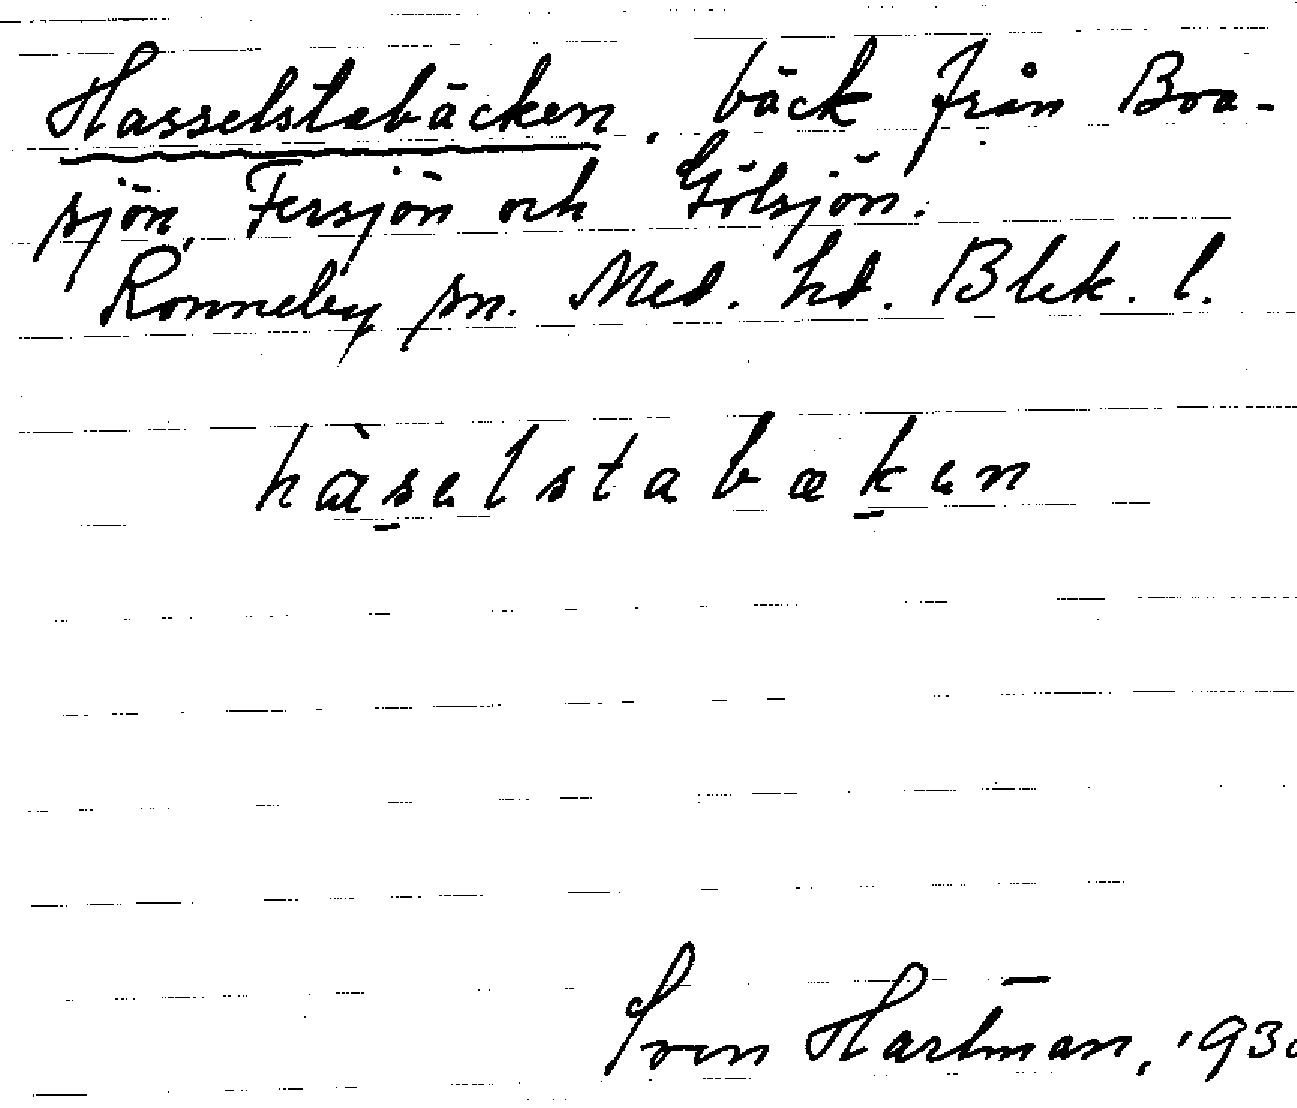 Hasselstabäcken, bäck från Boa-
sjön, Fersjön och Gölsjön.
Ronneby sn. Med. hd. Blek. l.
hàselstabækən
Sven Hartman, 193